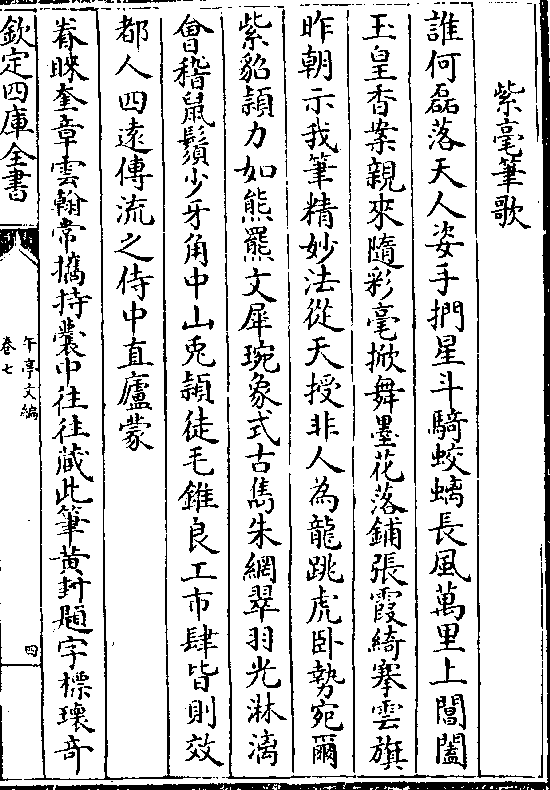 紫毫筆歌
誰何磊落天人姿手捫星斗騎蛟螭長風萬里上閶闔
玉皇香案親來隨彩毫掀舞墨花落鋪張霞綺搴雲旗
昨朝示我筆精妙法從天授非人為龍跳虎臥勢宛爾
紫貂頴力如熊羆文犀琬象式古雋朱網翠羽光淋漓
會稽鼠鬚少牙角中山兎頴徒毛錐良工市肆皆則效
都人四遠傳流之侍中直廬蒙
眷睞奎章雲翰常擕持囊中往往藏此筆黄封題字標瓌奇
欽定四庫全書
午亭文編
卷七
四